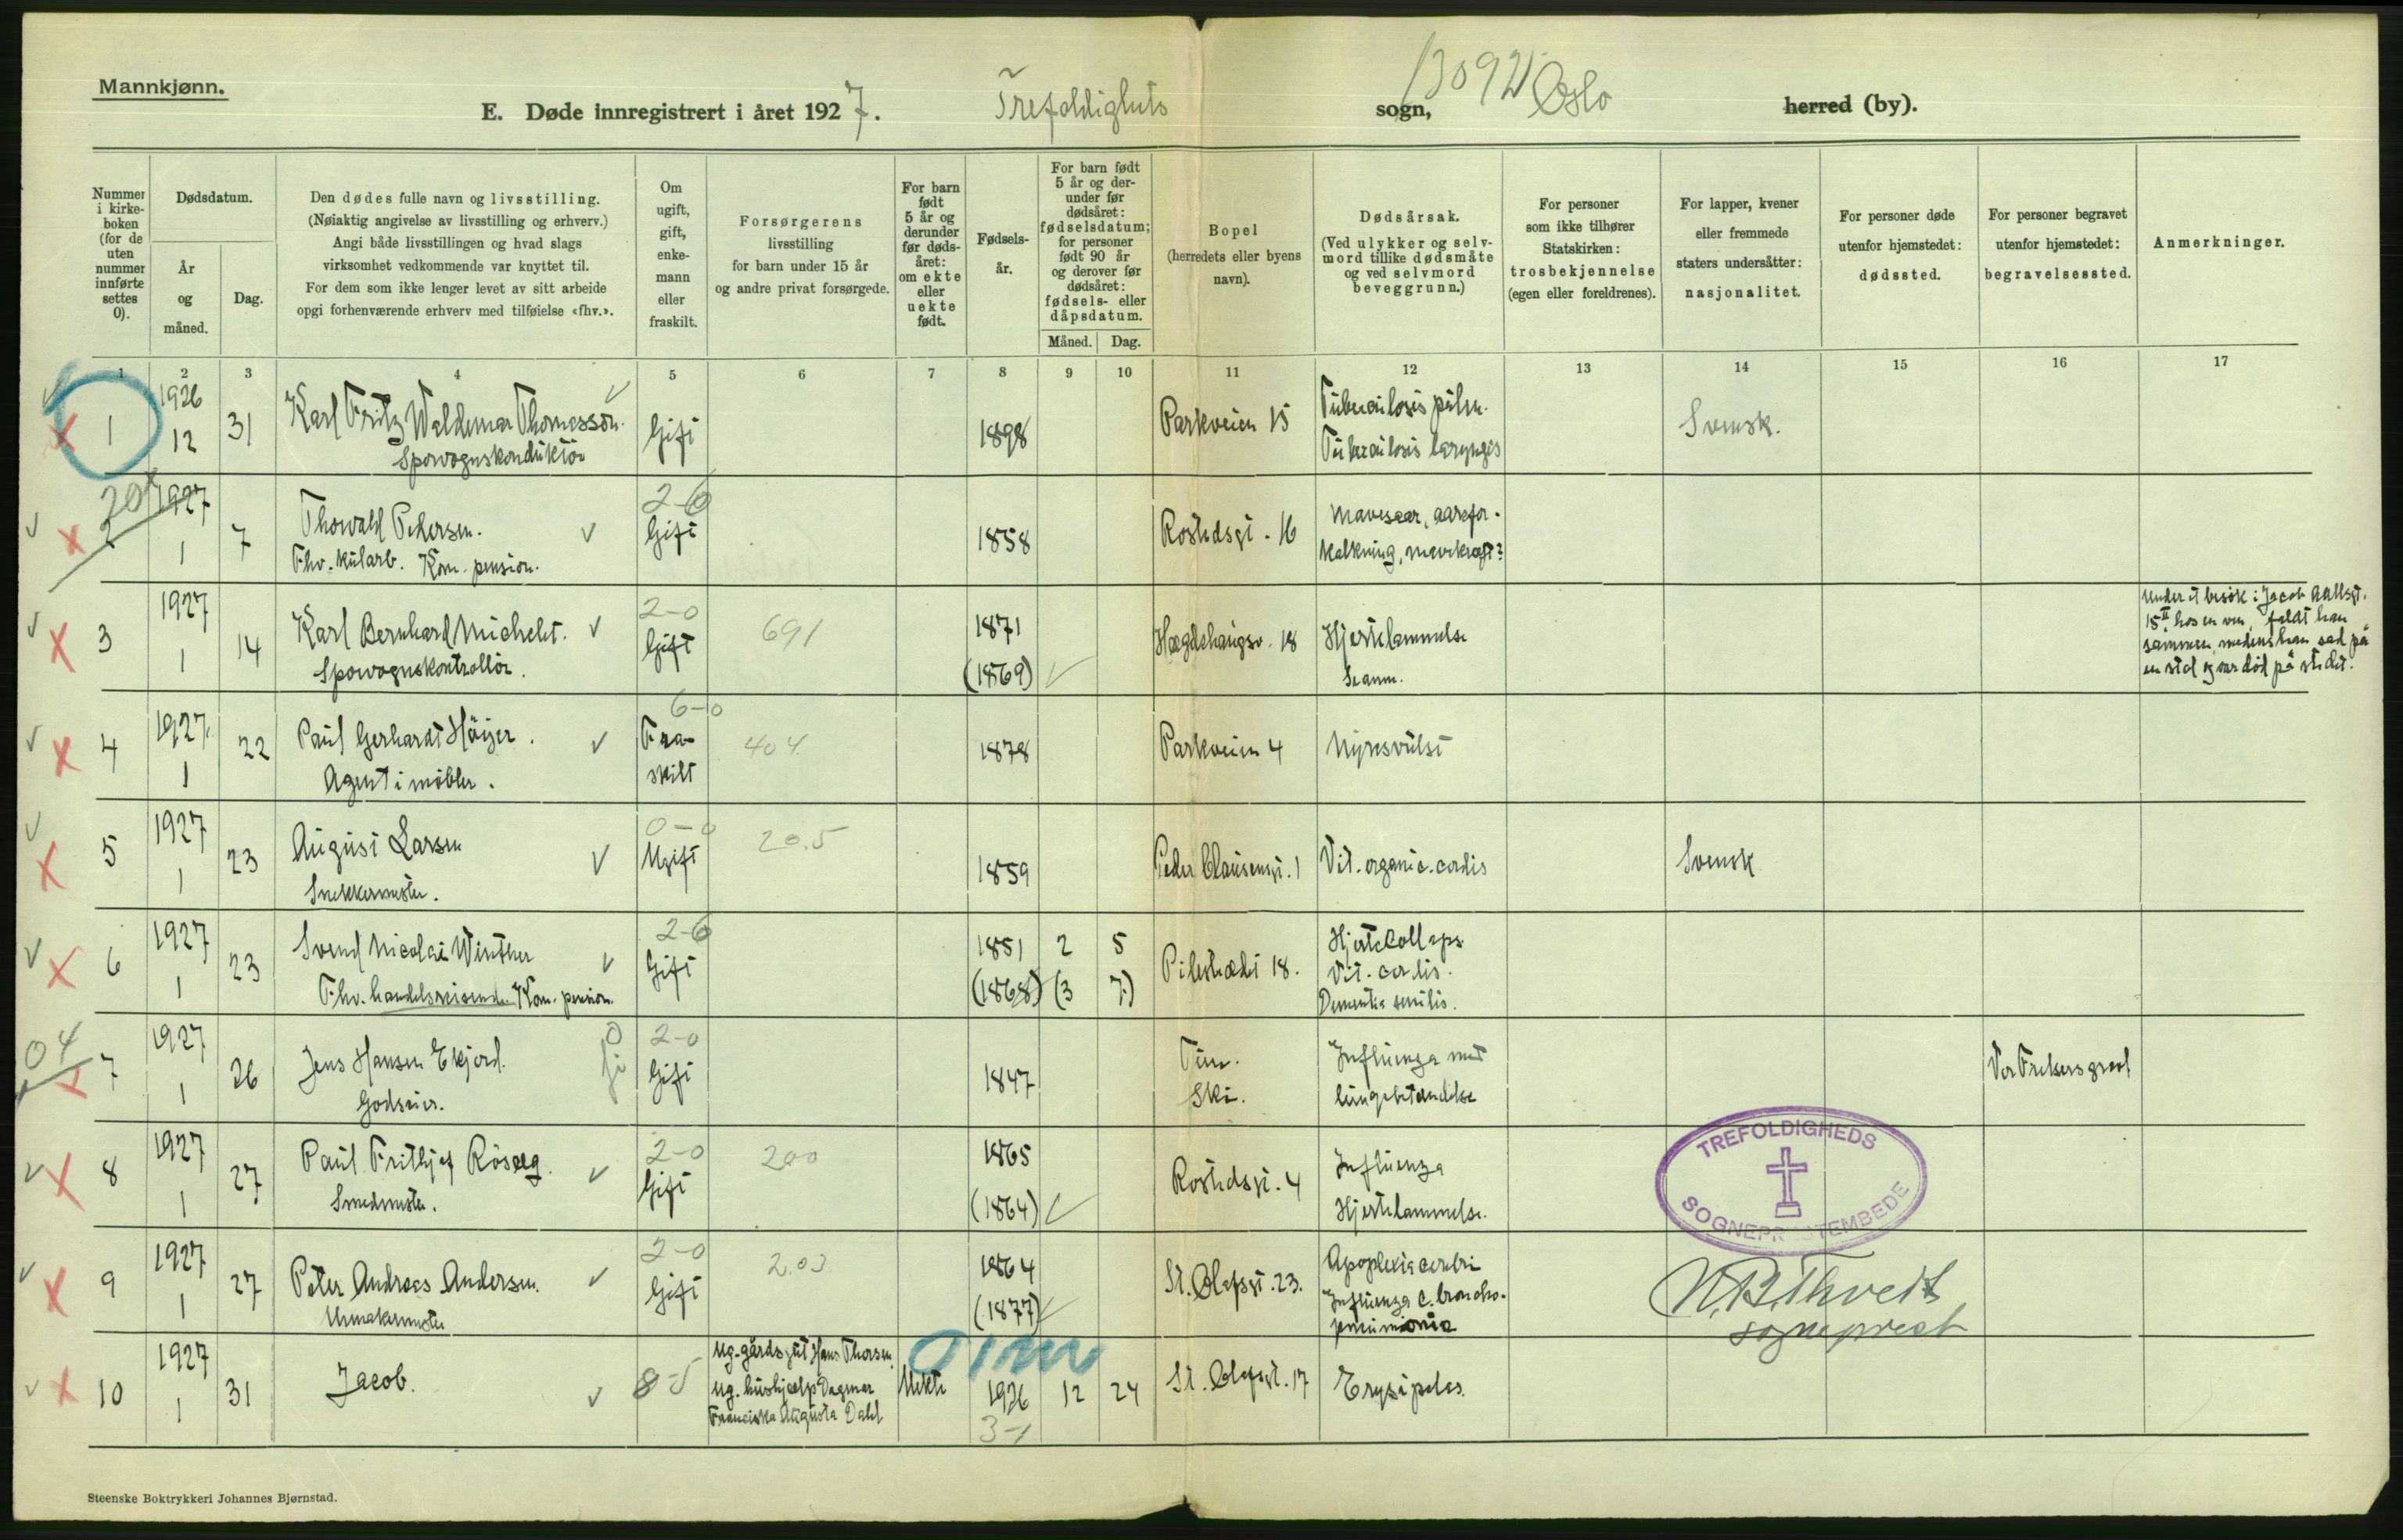 Mannkjønn.
E. Døde innregistrert i året 1927. Trefoldighets sogn, Oslo herred (by).
13092
Nummer i kirke-boken (for de uten nummer innførte settes 0).
Dødsdatum.
År og måned.
Dag.
Den dødes fulle navn og livsstilling.
(Nøiaktig angivelse av livsstilling og erhverv.)
Angi både livsstillingen og hvad slags
virksomhet vedkommende var knyttet til.
For dem som ikke lenger levet av sitt arbeide
opgi forhenværende erhverv med tilføielse «fhv.».
Om ugift, gift, enke-mann eller fraskilt.
Forsørgerens
livsstilling
for barn under 15 år
og andre privat forsørgede.
For barn født 5 år og derunder før døds-året: om ekte eller uekte født.
Fødsels-år.
For barn født 5 år og der-under før dødsåret: fødselsdatum; for personer født 90 år og derover før dødsåret: fødsels- eller dåpsdatum.
Måned. Dag.
Bopel
(herredets eller byens navn).
Dødsårsak.
(Ved ulykker og selv-mord tillike dødsmåte og ved selvmord beveggrunn.)
For personer som ikke tilhører Statskirken: trosbekjennelse (egen eller foreldrenes).
For lapper, kvener eller fremmede staters undersåtter: nasjonalitet.
For personer døde utenfor hjemstedet: dødssted.
For personer begravet utenfor hjemstedet: begravelsessted.
Anmerkninger.
1 2 3 4 5 6 7 8 9 10 11 12 13 14 15 16 17
1 1926 12 31 Karl Fritz Waldemar Thomasson. Gift 1898 Parkveien 15 Tuberculosis pulm. Svensk.
Sporvognskonduktör Tuberculosis laryngis
20
2 1927 1 7 Thorvald Pedersen. 2-6 Gift 1858 Rostedsgt. 16 Mavesaar, aarefor-
Fhv. kularb. Kom. pension. kalkning, mavekræft?
3 1927 1 14 Karl Bernhard Michelet. 2-0 Gift 691 1871 (1869) Hægdehaugsv. 18 Hjertelammelse
Sporvognskontrollör.
Under et besök i Jacob Aallsgt.
15 II hos en ven, faldt han
sammen, medens han sad på
en stol og var död på stedet.
4 1927 1 22 Paul Gerhardt Höyer. 6-0 Fra-skilt 404 1878 Parkveien 4 Nyresvulst
Agent i möbler.
5 1927 1 23 August Larsen 0-0 Ugift 20.5 1859 Peder Clausensgt. 1 Vit. organic. cordis Svensk
Snekkermester.
6 1927 1 23 Svend Nicolai Winther 2-6 Gift 1851 2 5 (1868) (3 7) Pilestrædet 18. Hjertecollaps
Fhv. handelsreisende Kom. pension. Vit. cordis.
Dementia senilis.
04
7 1927 1 26 Jens Hansen Ekjord. 2-0 Gift 1847 Ski. Influenza med Vor Frelsers gravl
Godseier. lungebetændelse
8 1927 1 27 Paul Frithjof Röseg. 2-0 Gift 200 1865 (1864) Rostedsgt. 4 Influenza
Smedmester. Hjertelammelse.
9 1927 1 27 Peter Andreas Andersen. 2-0 Gift 203 1864 (1877) St. Olafsgt. 23. Apoplexia cerebri
Urmakermester Influenza c. broncho-
pneumonia
10 1927 1 31 Jacob. 8-5 Ug. gårdsgut Hans Thorsen, Uekte 1926 12 24 St. Olafsgt. 17 Erysipelas.
Ug. hushjælp Dagmar
Franciska Augusta Dahl
01 m
3-1
TREFOLDIGHEDS
SOGNEPRESTEMBEDE
sogneprest
Steenske Boktrykkeri Johannes Bjørnstad.